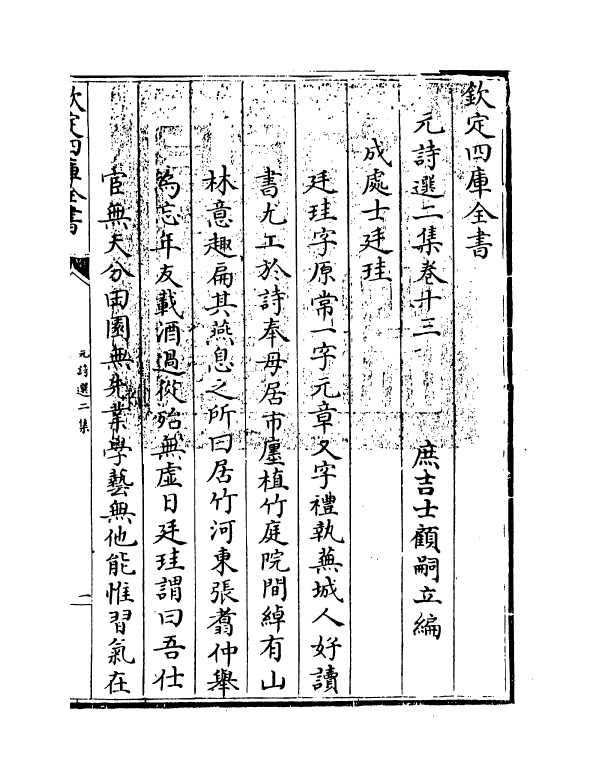 欽定四庫全書
元詩選二集卷廿三
庶吉士顧嗣立編
成處士廷珪
廷珪字原常一字元章又字禮執蕪城人好讀
書尤工於詩奉母居市廛植竹庭院間綽有山
林意趣扁其燕息之所曰居竹河東張翥仲舉
為忘年友載酒過從殆無虛日廷珪謂曰吾仕
宦無天分田園無先業學藝無他能惟習氣在
欽定四庫全書
元詩選二集
一